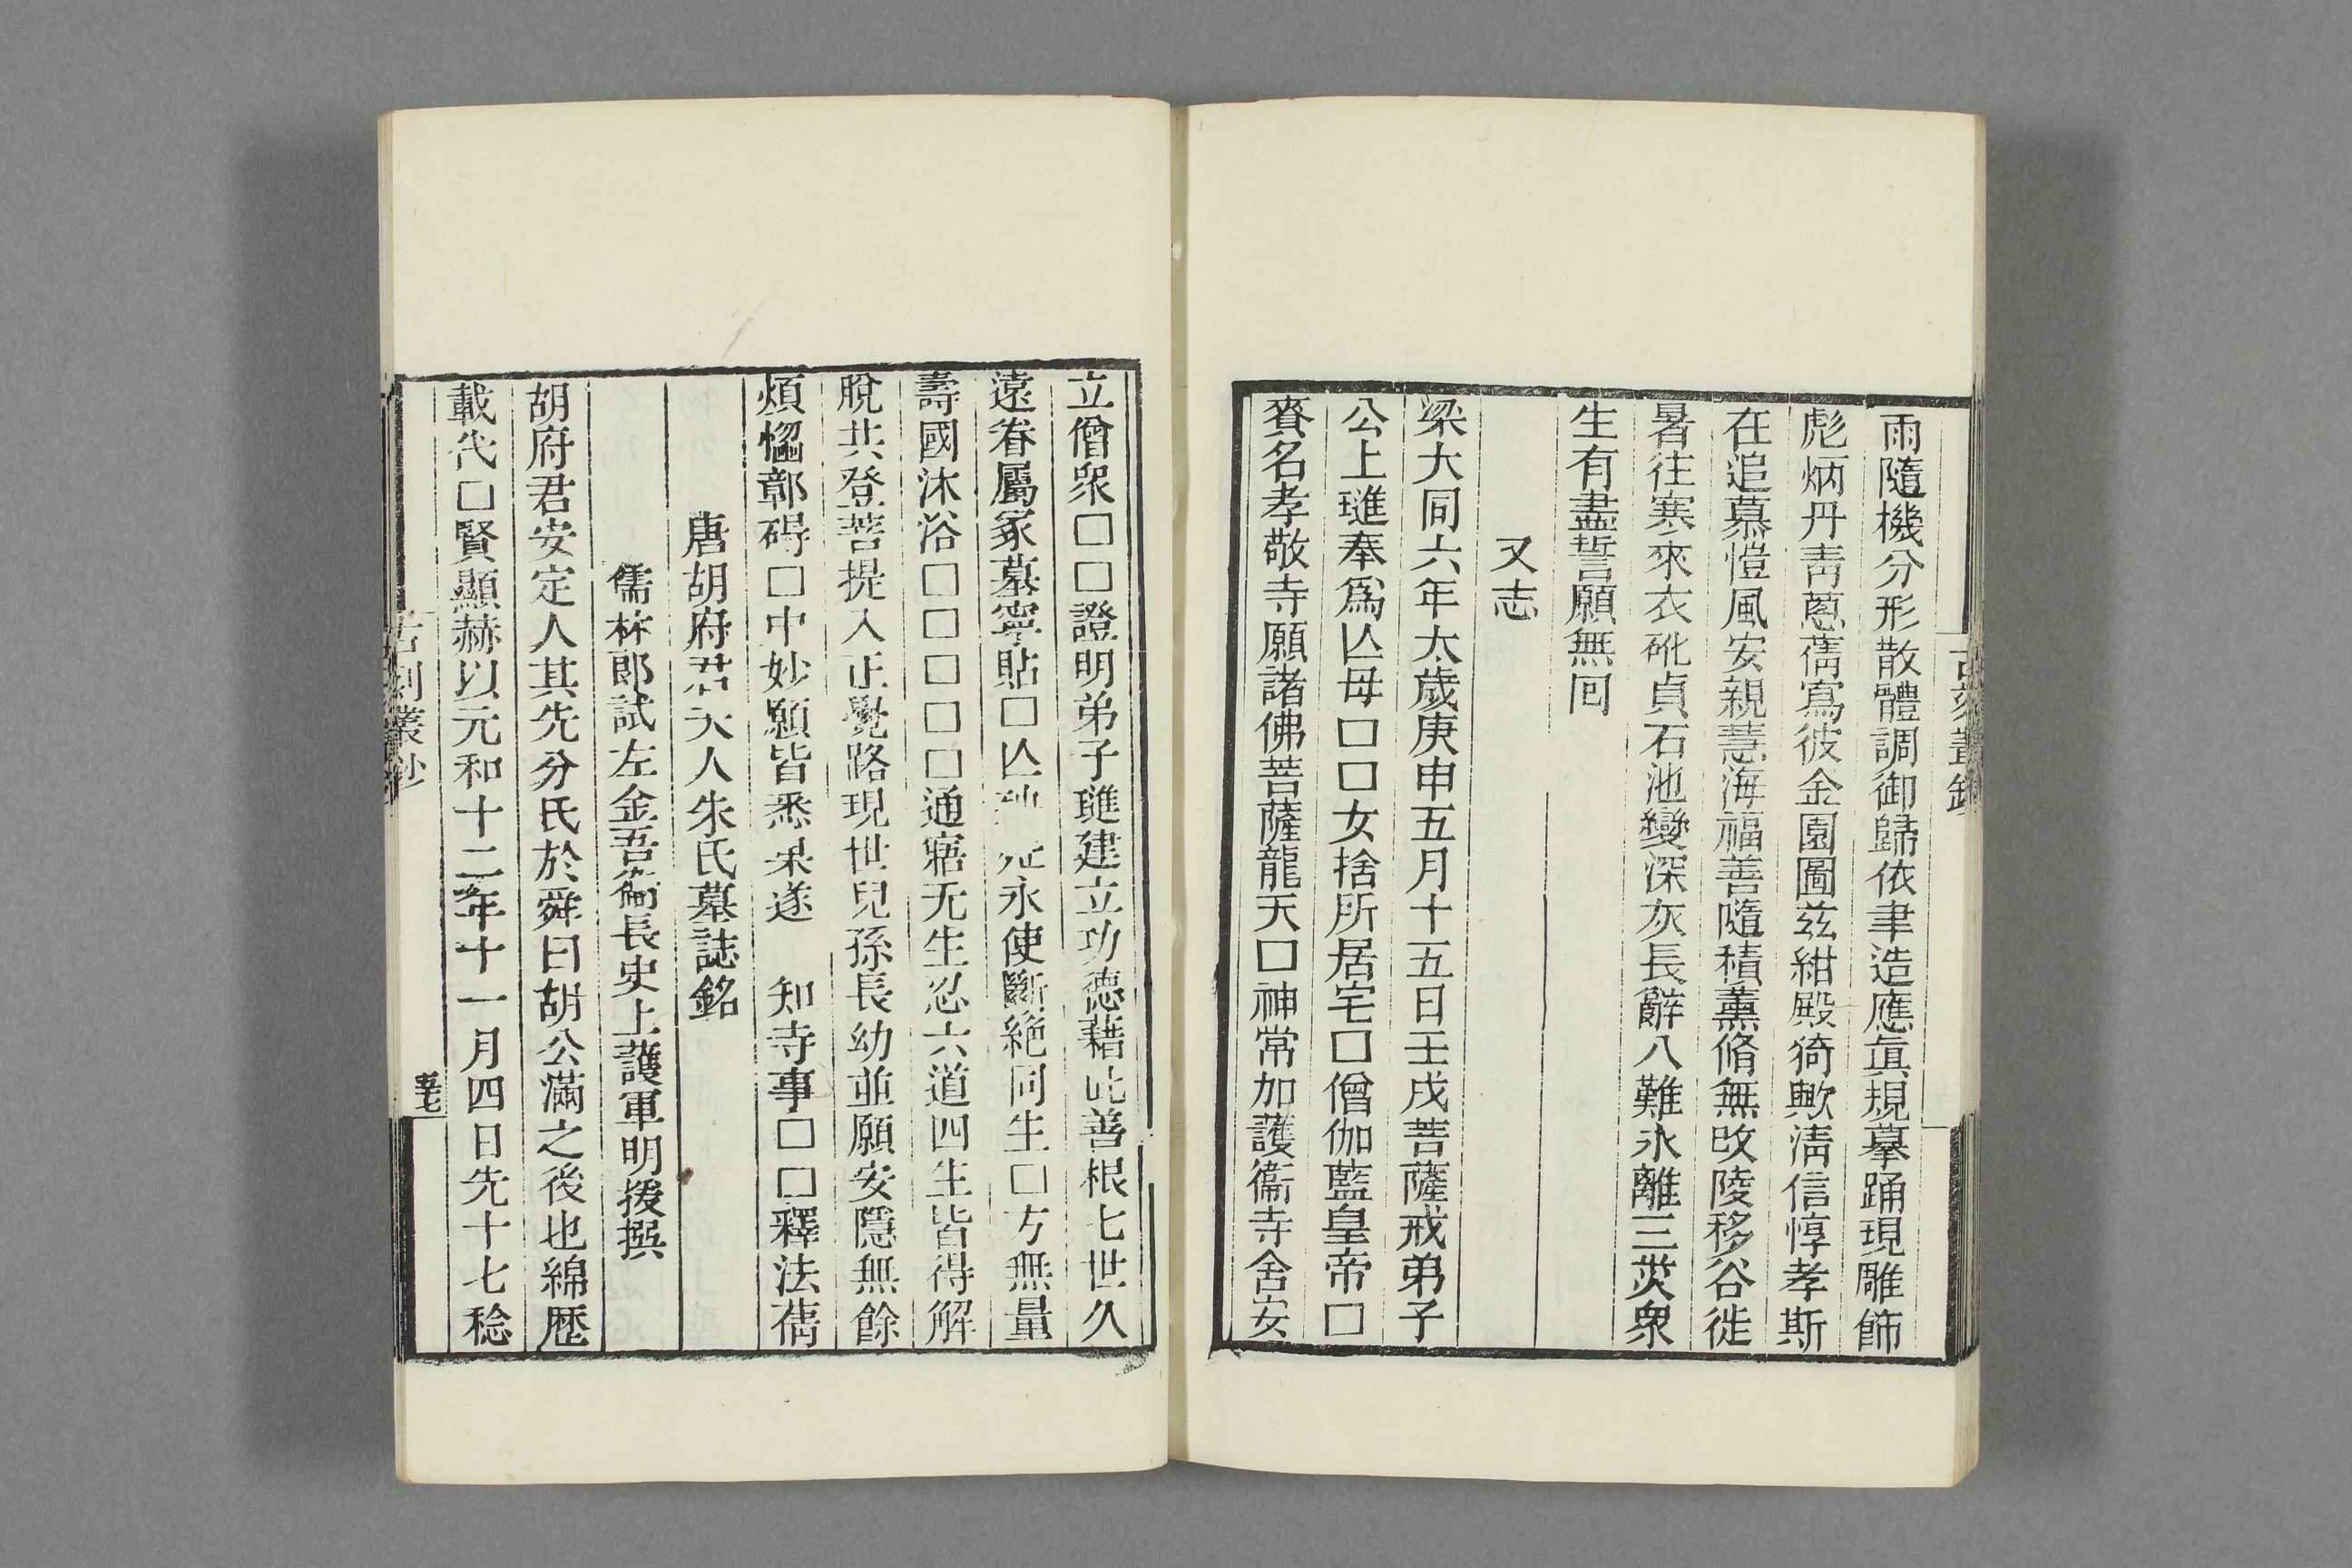 雨隨機分形散體調御歸依聿造應眞規摹踊現雕飾
彪炳丹靑蒽蒨寫彼金園圖玆紺殿猗歟淸信惇孝斯
在追慕愷風安親慧海福善隨積薰脩無改陵移谷徙
暑往寒來衣砒貞石池變深灰長辭八難永離三灾衆
生有盡誓願無回
又志
梁大同六年太歲庚申五月十五日壬戌菩薩戒弟子
公上璡奉爲亾母□□女捨所居宅□僧伽藍皇帝□
賚名孝敬寺願諸佛菩薩龍天□神常加護衞寺舍安
立僧衆□□證明弟子璡建立功德藉此善根七世久
遠眷屬冢墓寧貼□亾永使斷絶同生□方無量
壽國沐浴□□□□□通寤无生忍六道四生皆得解
脫共登菩提入正覺路現世兒孫長幼並願安隱無餘
煩惱鄣碍□中妙願皆悉果遂 知寺事□□釋法蒨
唐胡府君夫人朱氏墓誌銘
儒林郎試左金吾衞長史上護軍明援撰
胡府君安定人其先分氏於舜曰胡公滿之後也綿歴
載代□賢顯赫以元和十二年十一月四日先十七稔
古刻叢鈔